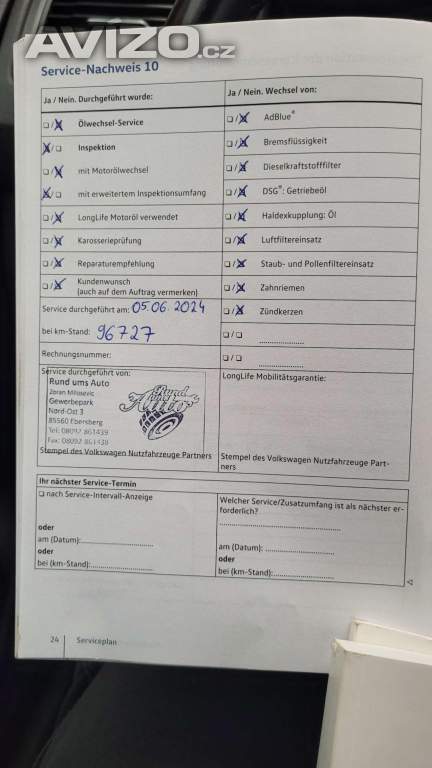 AVÍZO.cz
Service-Nachweis 10
Ja / Nein. Durchgeführt wurde:
❏/X Ölwechsel-Service
X/❏ Inspektion
❏/X mit Motorölwechsel
X/❏ mit erweitertem Inspektionsumfang
❏/X LongLife Motoröl verwendet
❏/X Karosserieprüfung
❏/X Reparaturempfehlung
❏/X Kundenwunsch
(auch auf dem Auftrag vermerken)
Service durchgeführt am: 05.06.2024
bei km-Stand: 96727
Rechnungsnummer:
Service durchgeführt von:
Rund ums Auto
Zoran Milosevic
Gewerbepark
Nord-Ost 3
85560 Ebersberg
Tel: 08092 861439
Fax: 08092 861438
Rund
Stempel des Volkswagen Nutzfahrzeuge Partners
Ja / Nein. Wechsel von:
❏/X AdBlue®
❏/X Bremsflüssigkeit
❏/X Dieselkraftstofffilter
❏/X DSG®: Getriebeöl
❏/X Haldexkupplung: Öl
❏/X Luftfiltereinsatz
❏/X Staub- und Pollenfiltereinsatz
❏/X Zahnriemen
❏/X Zündkerzen
❏/❏ ....................
❏/❏ ....................
LongLife Mobilitätsgarantie:
Stempel des Volkswagen Nutzfahrzeuge Part-
ners
Ihr nächster Service-Termin
❏ nach Service-Intervall-Anzeige
oder
am (Datum):....................
oder
bei (km-Stand):....................
Welcher Service/Zusatzumfang ist als nächster er-
forderlich?
........................................
am (Datum): ....................
oder
bei (km-Stand):....................
24 Serviceplan